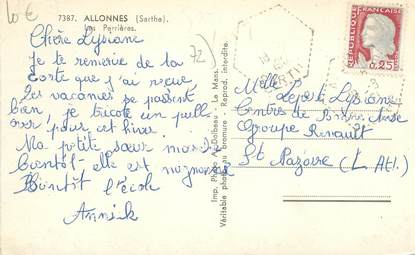 10 €
7387. ALLONNES (Sarthe).
Les Perrières.
72)
Chère Lysiane
Je te remercie de la
carte que j'ai reçue
Les vacances se passent
bien, je tricote un pull-
over pour cet hiver.
Ma ptite sœur marche
bientôt - elle est mignonne
Bientôt l'école
Annick
Imp. Phot. A. Dolbeau - Le Mans.
Véritable photo au bromure - Reprod. interdite.
REPUBLIQUE FRANÇAISE
0,25
Melle Lysiane
Centres de
Groupe Renault
St Nazaire (L. Atl.)